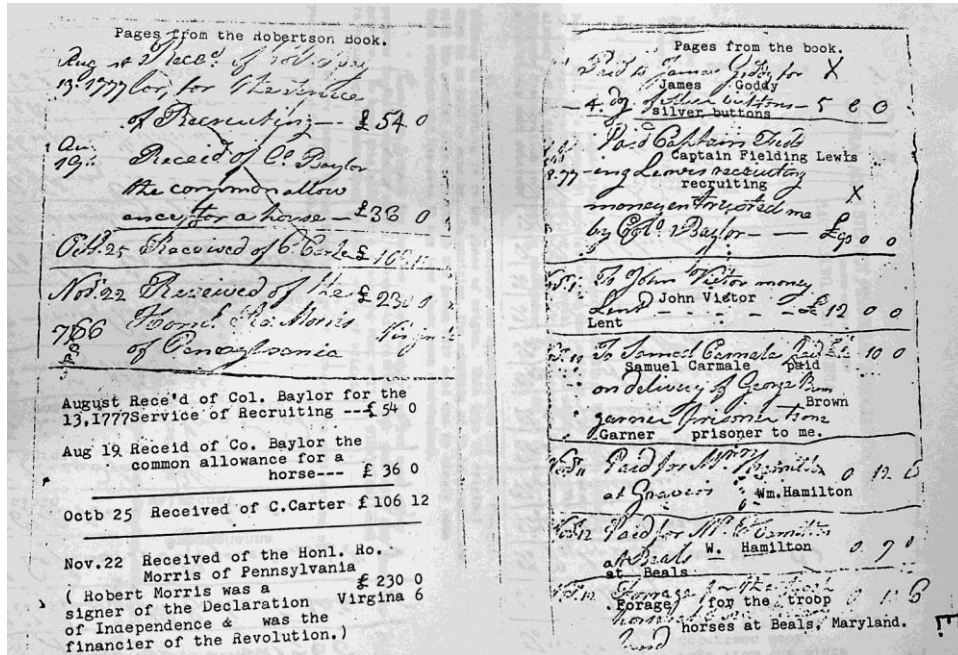 Pages from the Robertson Book.
Aug
13. 1777 for the service
of Recruiting -- £ 54 0
19. Receid of Co. Baylor
the common allow
ance for a horse - £ 36 0
Octb. 25 Received of C. Carter £ 106 12
Nov. 22 Received of the £ 230 0
Honl. Ro. Morris
of Pennsylvania
August Rece'd of Col. Baylor for the
13,1777 Service of Recruiting ---£ 54 0
Aug 19 Receid of Co. Baylor the
common allowance for a
horse--- £ 36 0
Octb 25 Received of C.Carter £ 106 12
Nov.22 Received of the Honl. Ro.
Morris of Pennsylvania
( Robert Morris was a £ 230 0
signer of the Declaration Virgina 6
of Independence & was the
financier of the Revolution.)
Pages from the book.
Paid to James Goddy for X
James Goddy
4. dz. of silver buttons - 5 0 0
silver buttons
Paid Captain Field
Captain Fielding Lewis
ing Lewis recruiting
recruiting
money entrusted me X
by Colo. Baylor - - £90 0 0
To John Victor money
John Victor
Lent - - - - - £ 12 0 0
Lent
To Samuel Carmale paid 10 0
Samuel Carmale paid
on delivery of George Brown
Brown
garner prisoner to me
Garner prisoner to me.
Paid for Wm. Hamilton 0 12 6
at Wm.Hamilton
Paid for W. Hamilton
at Beals W. Hamilton 0 7
at Beals
Forage for the troop
Forage for the troop
horses at Beals, Maryland.